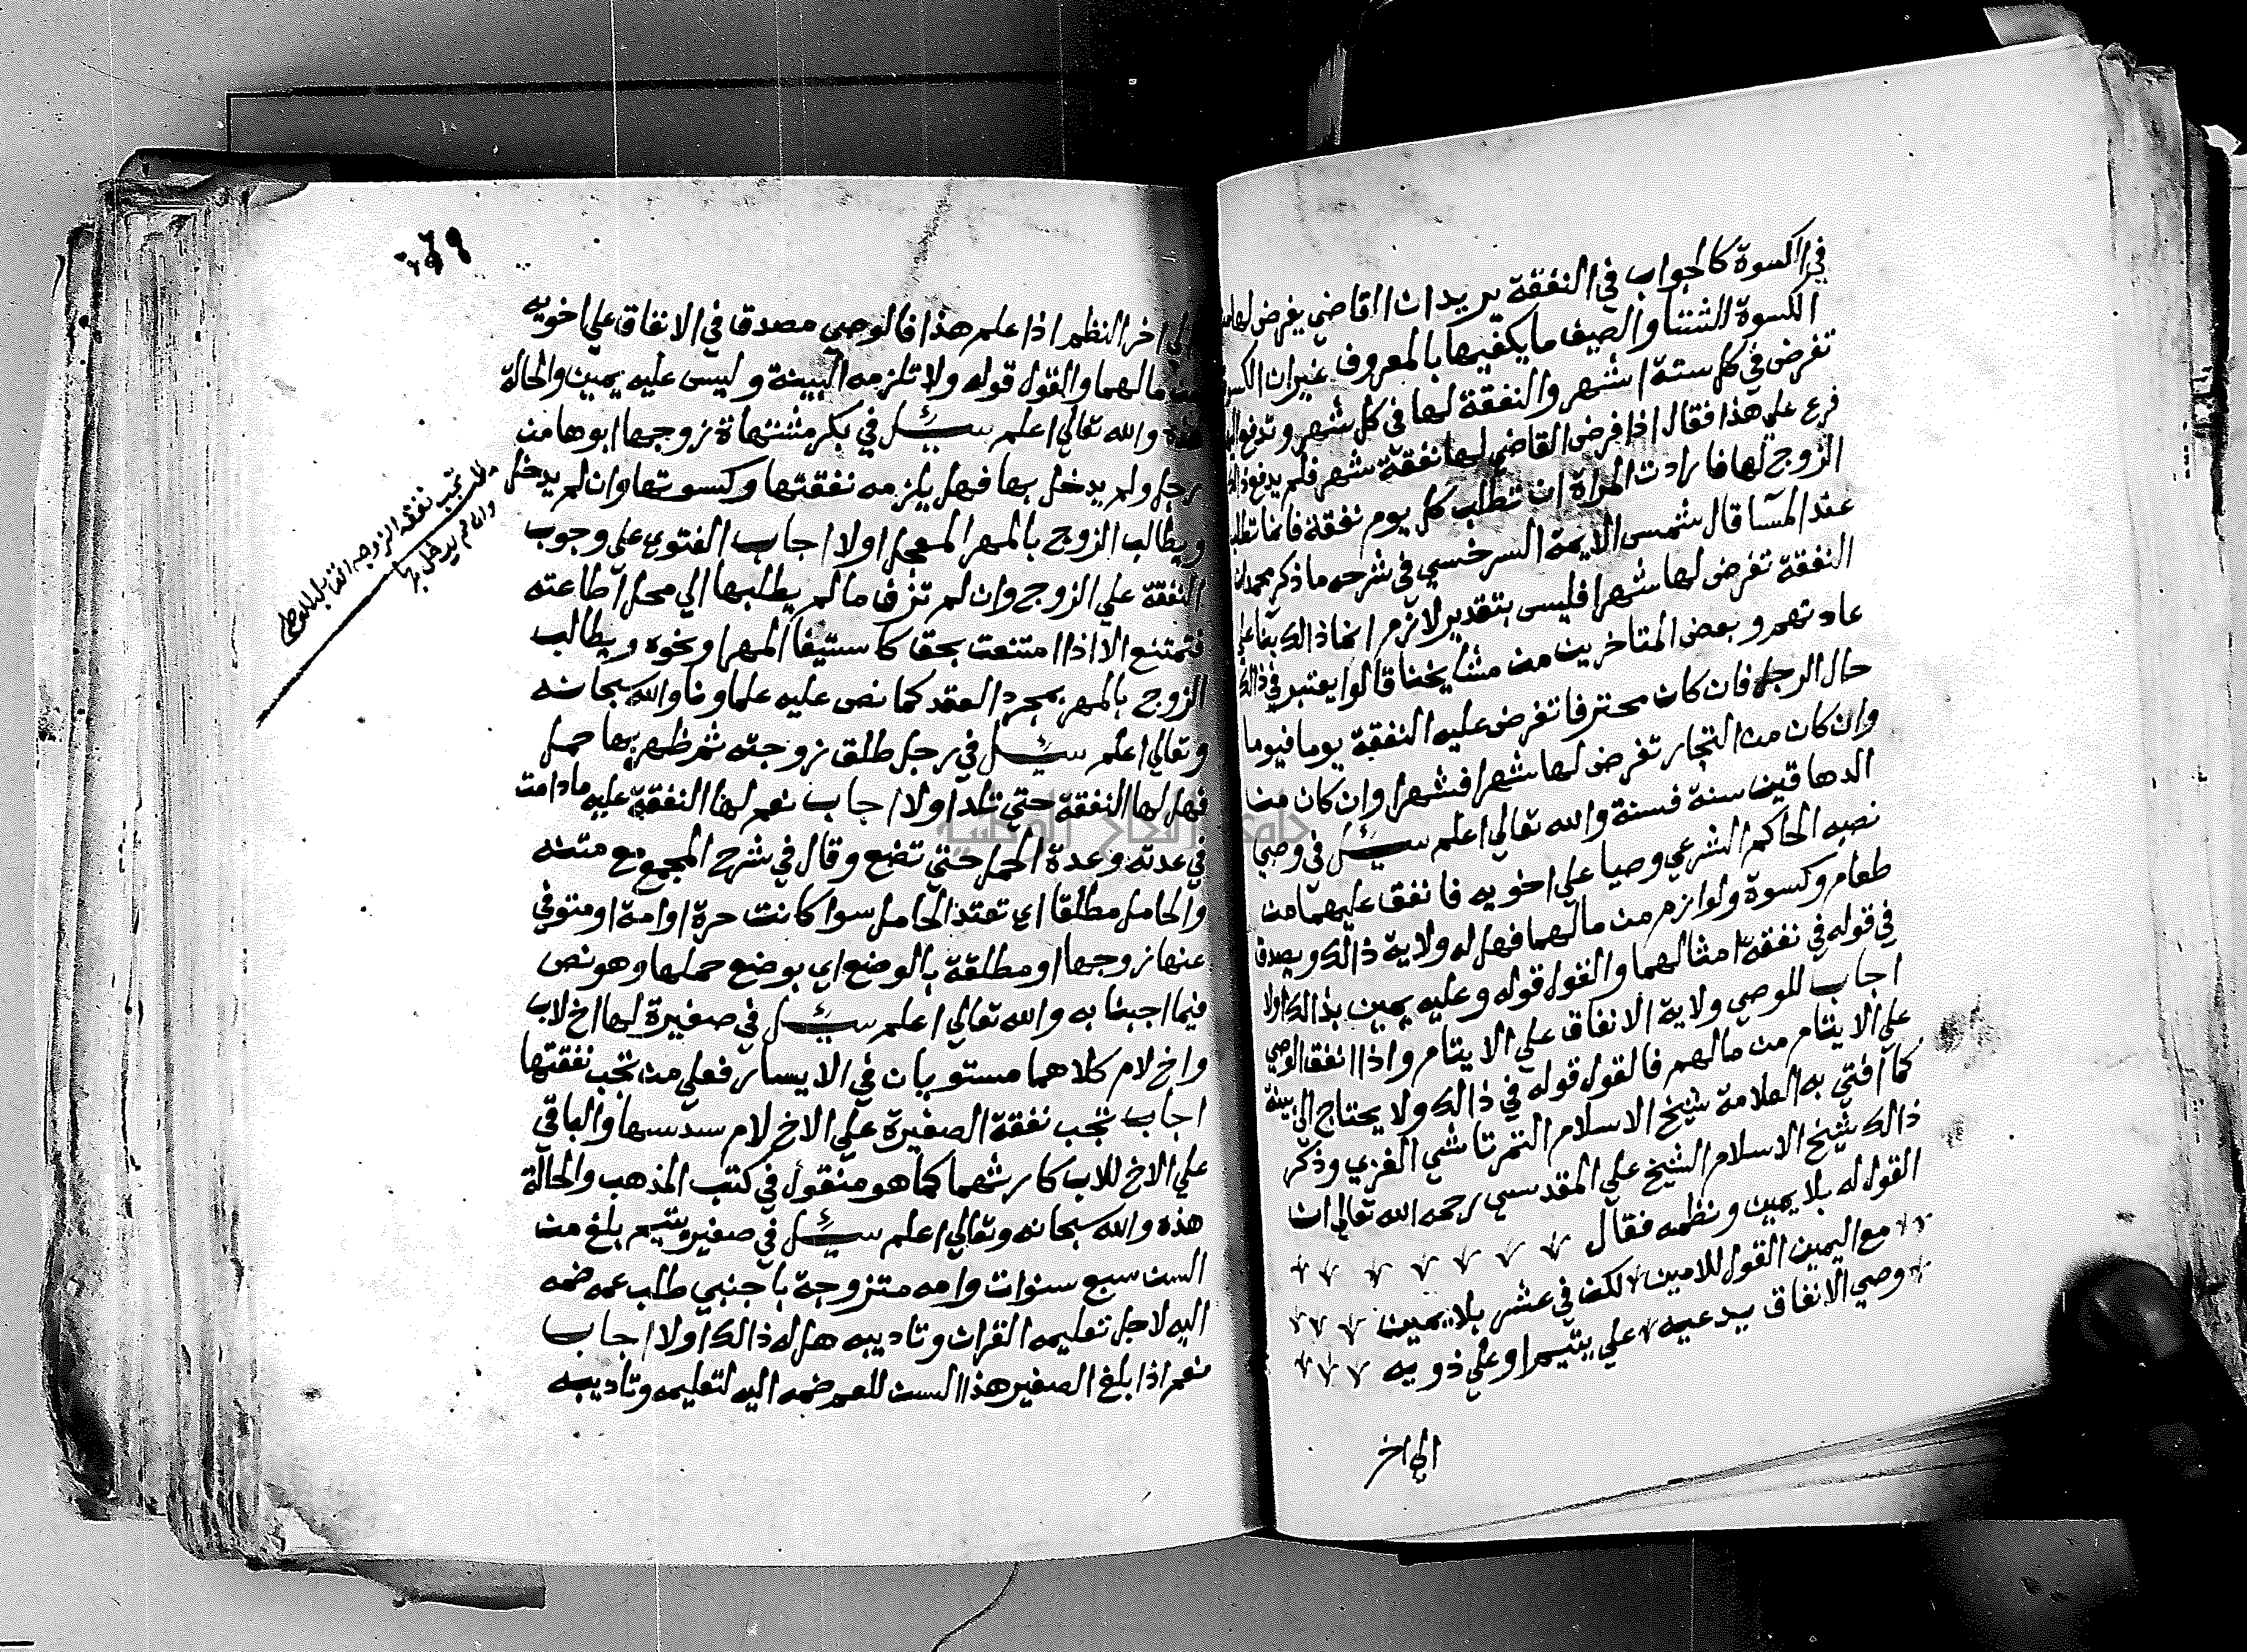 في الكسوة كالجواب في النفقة يريد ان القاضي يفرض لها
الكسوة للشتا والصيف ما يكفيها بالمعروف غير ان الكسوة
تفرض في كل ستة اشهر والنفقة لها في كل شهر وتدفع اليها
فرع علي هذا فقال اذا فرض القاضي لها نفقة شهر فلم يدفع
الزوج لها فارادت المراة ان تطلب كل يوم نفقة فانما تطلب
عند المسا قال شمس الايمة السرخسي في شرحه ما ذكر محمد ان
النفقة تفرض لها شهرا فليس بتقدير لازم انما ذالك بنا علي
عادتهم وبعض المتاخرين من مشايخنا قالوا يعتبر في ذالك
حال الرجل فان كان محترفا تفرض عليه النفقة يوما فيوما
وان كان من التجار تفرض لها شهرا فشهرا وان كان من
الدهاقين سنة فسنة والله تعالي اعلم سئل في وصي
نصبه الحاكم الشرعي وصيا علي اخويه فانفق عليهما من
طعام وكسوة ولوازم من مالهما فهل له ولاية ذالك ويصدق
في قوله في نفقة امثالهما والقول قوله وعليه يمين بذالك اولا
اجاب للوصي ولاية الانفاق علي الايتام واذا انفق الوصي
علي الايتام من مالهم فالقول قوله في ذالك ولا يحتاج الي بينة
كما افتي به العلامة شيخ الاسلام التمرتاشي الغزي وذكر
ذالك شيخ الاسلام الشيخ علي المقدسي رحمه الله تعالي ان
القول له بلا يمين ونظمه فقال
مع اليمين القول للامين لكن في عشر بلا يمين
وصي الانفاق يدعيه علي يتيم او علي ذويه
الي اخر
الي اخر النظم اذا علم هذا فالوصي مصدق في الانفاق علي اخويه
من مالهما والقول قوله ولا تلزمه البينة وليس عليه يمين والحالة
هذه والله تعالي اعلم سئل في بكر مشتهاة زوجها ابوها من
رجل ولم يدخل بها فهل يلزمه نفقتها وكسوتها وان لم يدخل
ويطالب الزوج بالمهر المعجل اولا اجاب الفتوي علي وجوب
النفقة علي الزوج وان لم تزف ما لم يطلبها الي محل اطاعته
فتمتنع الا اذا امتنعت بحق كاستيفا المهر او نحوه ويطالب
الزوج بالمهر بمجرد العقد كما نص عليه علماونا والله سبحانه
وتعالي اعلم سئل في رجل طلق زوجته ثم ظهر بها حمل
فهل لها النفقة حتي تلد اولا اجاب نعم لها النفقة عليه ما دامت
في عدته وعدة الحمل حتي تضع وقال في شرح المجمع مع متنه
والحامل مطلقا اي تعتد الحامل سوا كانت حرة او امة او متوفي
عنها زوجها او مطلقة بالوضع اي بوضع حملها وهو نص
فيما اجبنا به والله تعالي اعلم سئل في صغيرة لها اخ لاب
واخ لام كلاهما مستويان في الايسار فعلي من تجب نفقتها
اجاب تجب نفقة الصغيرة علي الاخ لام سدسها والباقي
علي الاخ للاب كارثهما كما هو منقول في كتب المذهب والحالة
هذه والله سبحانه وتعالي اعلم سئل في صغير يتيم بلغ من
السن سبع سنوات وامه متزوجة باجنبي طلب عمه ضمه
اليه لاجل تعليمه القران وتاديبه هل له ذالك اولا اجاب
نعم اذا بلغ الصغير هذا السن للعم ضمه اليه لتعليمه وتاديبه
مطلب تجب نفقة الزوجه القابله للوطي
وان لم يدخل بها